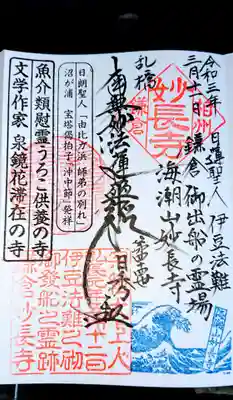 令和三年
三月十一日
日蓮聖人 伊豆法難
鎌倉御出船の霊場
海潮山妙長寺
相州
妙長寺
鎌倉
乱橋
南無妙法蓮華経
日朗聖人「由比ガ浜 師弟の別れ」
沼が浦 宝塔偈拍子「沖中節」発祥
魚介類慰霊うろこ供養の寺
文学作家 泉鏡花滞在の寺
伊豆法難之砌
御発船之霊跡
鎌倉妙長寺